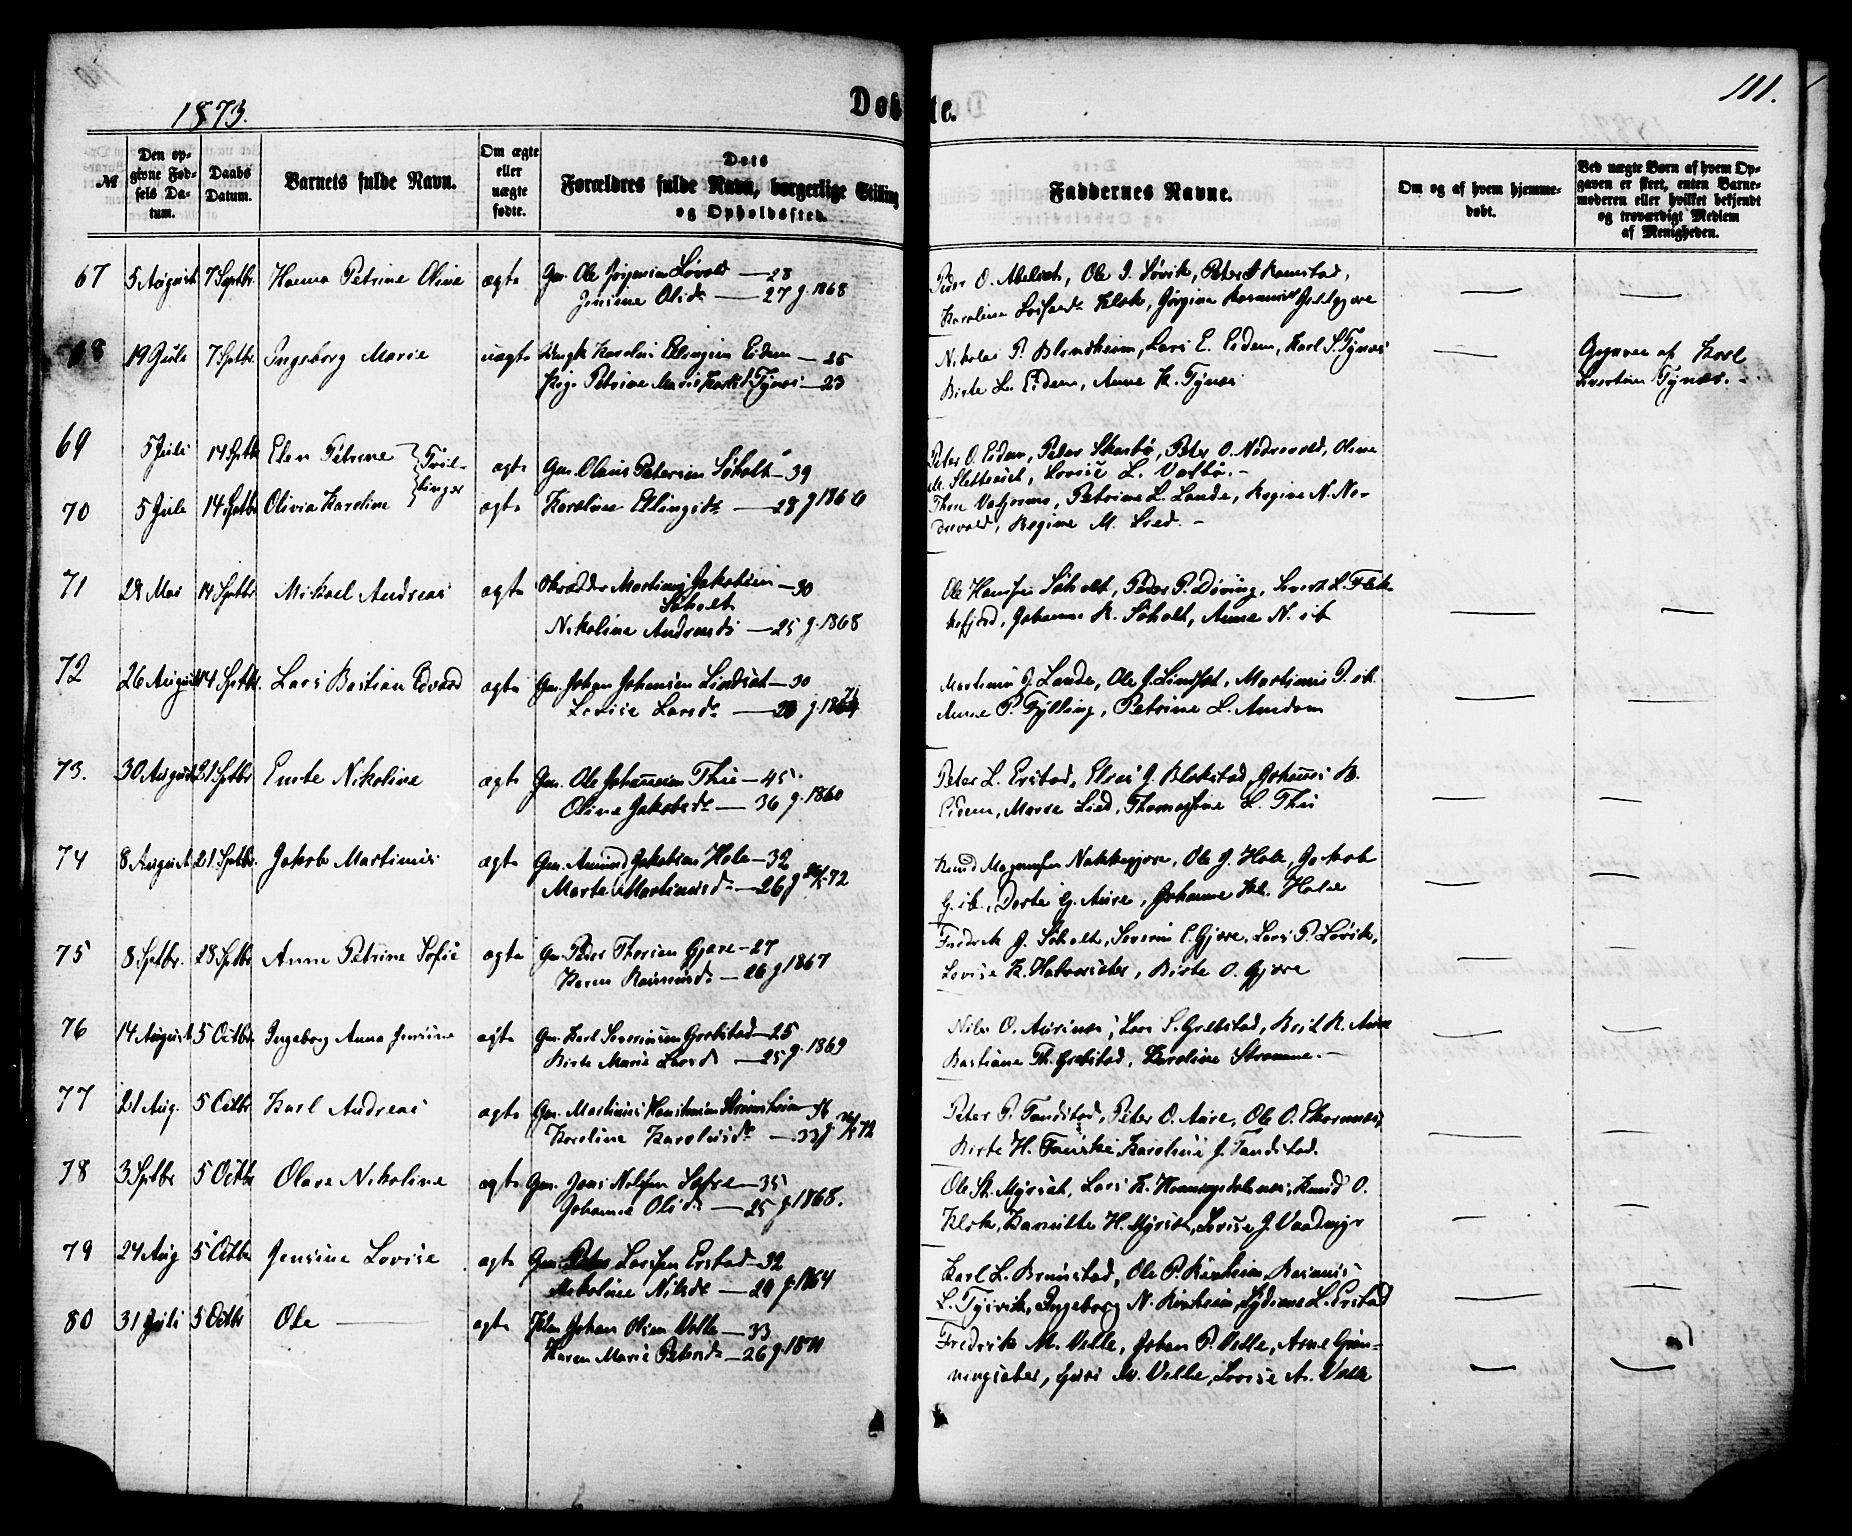 1873.
Døbte.
111.
№
Den opgivne Fødsels Datum.
Daabs Datum.
Barnets fulde Navn.
Om ægte eller uægte fødte.
Dets Forældres fulde Navn, borgerlige Stilling og Opholdssted.
Faddernes Navne.
Om og af hvem hjemmedøbt.
Ved uægte Børn af hvem Opgaven er skeet, enten Barnemoderen eller hvilket bekjendt og troværdigt Medlem af Menigheden.
67 5 August 7 Septbr Hanna Petrine Oline ægte Gm. Ole Løvold — 28
Jensine Olsdr — 27 g. 1868
Peder O. Ole J. Løvik, Peter Ramstad,
Karoline Klok, Jørgine
68 19 Juli 7 Septbr Ingeborg Marie uægte Ungk Karolus Ellingsen Eidem — 25
Pige Petrine Marie Tynes — 23
Nikolai P. Blindheim, Lars E. Eidem, Karl S. Tynes
Birte L. Eidem, Anne K. Tynes
Opgaven af Karl
Tynes.
69 5 Juli 14 Septbr Elen Petrine Tvil-
linger
ægte Gm. Olaus Petersen Søholt — 39
Peter O. Eidem, Peter Skarbø, Peter O. Nødrevold, Oline
M. Lovise L. Valbø. —
70 5 Juli 14 Septbr Olivia Karoline ægte Karoline Ellingsdr — 28 g 1866
Petrine L. Lande, Regine N. Nø-
drevold, Regine M. Lied. —
71 28 Mai 14 Septbr Mikael Andreas ægte Skrædder Martinus Jakobsen — 30
Søholt
Nikoline Andreasd — 25 g. 1868
Ole Hansen Søholt, Peder P. Døving, Sivert L. Flek-
kefjord, Johanne K. Søholt, Anne N. ib
72 26 August 14 Septbr. Lars Bastian Edvard ægte Gm. Johan Johansen Lindset — 30
Lovise Larsdr — g. 18
Martinus J. Lande, Ole J. Lindset, Martinus P. ib.
Anne P. Fylling, Petrine L. Amdam
73. 30 August 21 Septbr Emte Nikoline ægte Gm. Ole Johannesen Thue — 45
Oline Jakobsdr — 36 g. 1860
Peter L. Erstad, Elias J. Blakstad, Johannes B.
Eidem, Marie Lied, Thomasine L. Thu
74 8 August 21. Septbr. Jakob Martinus ægte Gm. Amund Jakobsen Hole — 32
Marte Martinusdr — 26 g 72
Knud Magnusen Nakkegjerde, Ole J. Hole, Jakob
G. ib., Dorte G. Aure, Johanne Kl. Hole
75 8 Septbr. 28 Septbr Anne Petrine Sofie ægte Gm. Peder Thorsen Gjære — 27
Karen Rasmusdr — 26 g 1867
Fredrik J. Søholt, Severin E. Gjære, Lars P. Løvik,
Lovise K. Birte O. Gjære
76 14 August 5 Octbr Ingeborg Anna Jensine ægte Gm. Karl Severinsen Grebstad — 25
Birte Marie Larsd — 25 g. 1869
Nils O. Aurenes, Lars S. Grebstad, Berit K. Aure
Bastiane Th. Grebstad, Karoline Stramme. —
77 21 Aug. 5 Octbr Karl Andreas ægte Gm. Martinus Strømsheim
Karoline Karolusdr — 33 g. 72
Peter P. Tandstad, Peter O. Aure, Ole O. Ekornnes,
Birte H. Karoline J. Tandstad.
78 3 Septbr 5 Octbr Olave Nikoline ægte Gm. Jens Nilsen Søfre — 35
Johanne Olsdr — 25 g. 1868.
Ole St. Myrset, Lars K. Knud O.
Klok, Karnille H. Myrset, Lovise J. Vaadmyr
79 24 Aug 5 Octbr Jensine Lovise ægte Gm. Peter Larsen Erstad — 32
Nikoline Nilsdr — 29 g. 1864
Karl L. Brunstad, Ole P. Rasmus
L. Tusvik, Ingeborg N. L. Erstad
80 31 Juli 5 Octbr Ole — ægte Johan Olsen Velle — 33
Karen Marie Petersdr — 26 g. 1871
Fredrik M. Velle, Johan P. Velle, Arne Grøn-
ningsæter, Guri M. Velle, Lovise A. Velle